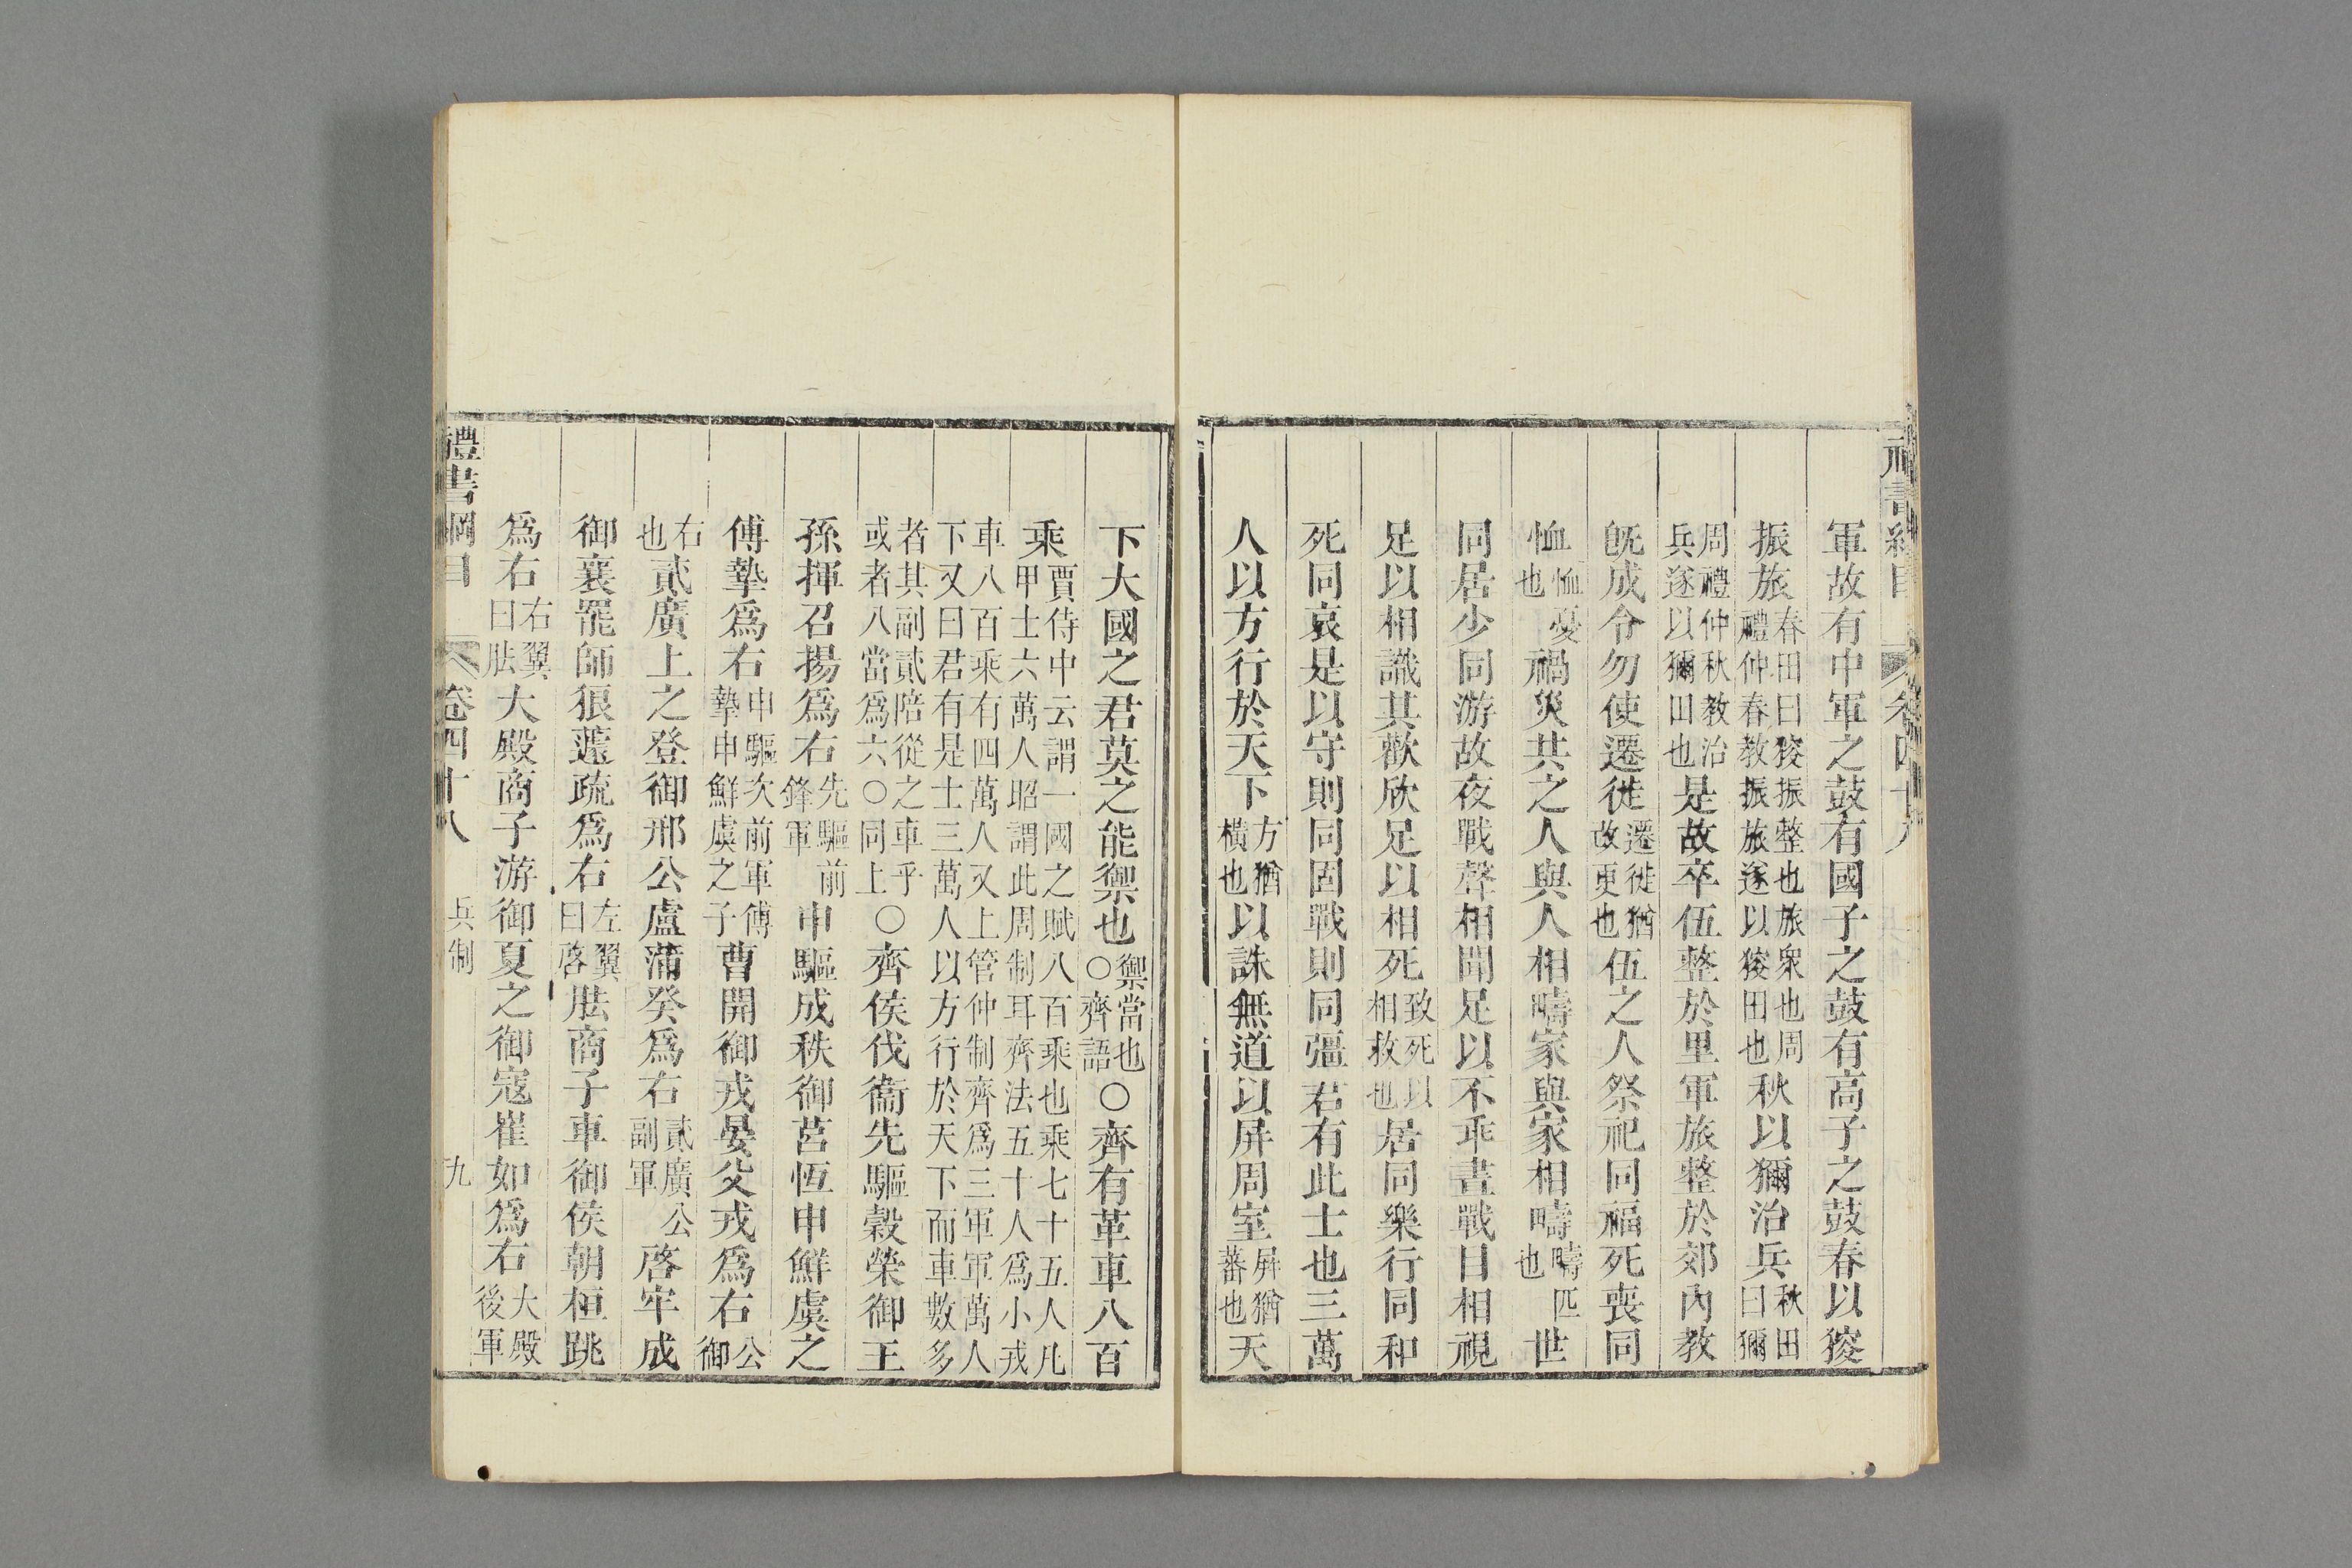 軍故有中軍之鼓有國子之鼓有高子之鼓春以㺇
振旅春田曰㺇振整也旅衆也周禮仲春教振旅遂以㺇田也秋以獮治兵秋田曰獮
周禮仲秋教治兵遂以獮田也是故卒伍整於里軍旅整於郊內教
旣成令勿使遷徙遷徙猶改更也伍之人祭祀同福死喪同
恤恤憂也禍災共之人與人相疇家與家相疇疇匹也世
同居少同游故夜戰聲相聞足以不乖晝戰目相視
足以相識其歡欣足以相死致死以相救也居同樂行同和
死同哀是以守則同固戰則同彊君有此士也三萬
人以方行於天下方猶橫也以誅無道以屏周室屏猶蕃也天
下大國之君莫之能禦也禦當也○齊語○齊有革車八百
乘賈侍中云謂一國之賦八百乘也乘七十五人凡甲士六萬人昭謂此周制耳齊法五十人爲小戎
車八百乘有四萬人又上管仲制齊爲三軍軍萬人下又曰君有是士三萬人以方行於天下而車數多
者其副貳陪從之車乎或者八當爲六○同上○齊侯伐衞先驅穀榮御王
孫揮召揚爲右先驅前鋒軍申驅成秩御莒恆申鮮虞之
傅摯爲右申驅次前軍傅摯申鮮虞之子曹開御戎晏父戎爲右公御
右也貳廣上之登御邢公盧蒲癸爲右貳廣公副軍啓牢成
御襄罷師狼蘧疏爲右左翼曰啓胠商子車御侯朝桓跳
爲右右翼曰胠大殿商子游御夏之御寇崔如爲右大殿後軍
禮書綱目 卷四十八 兵制 九